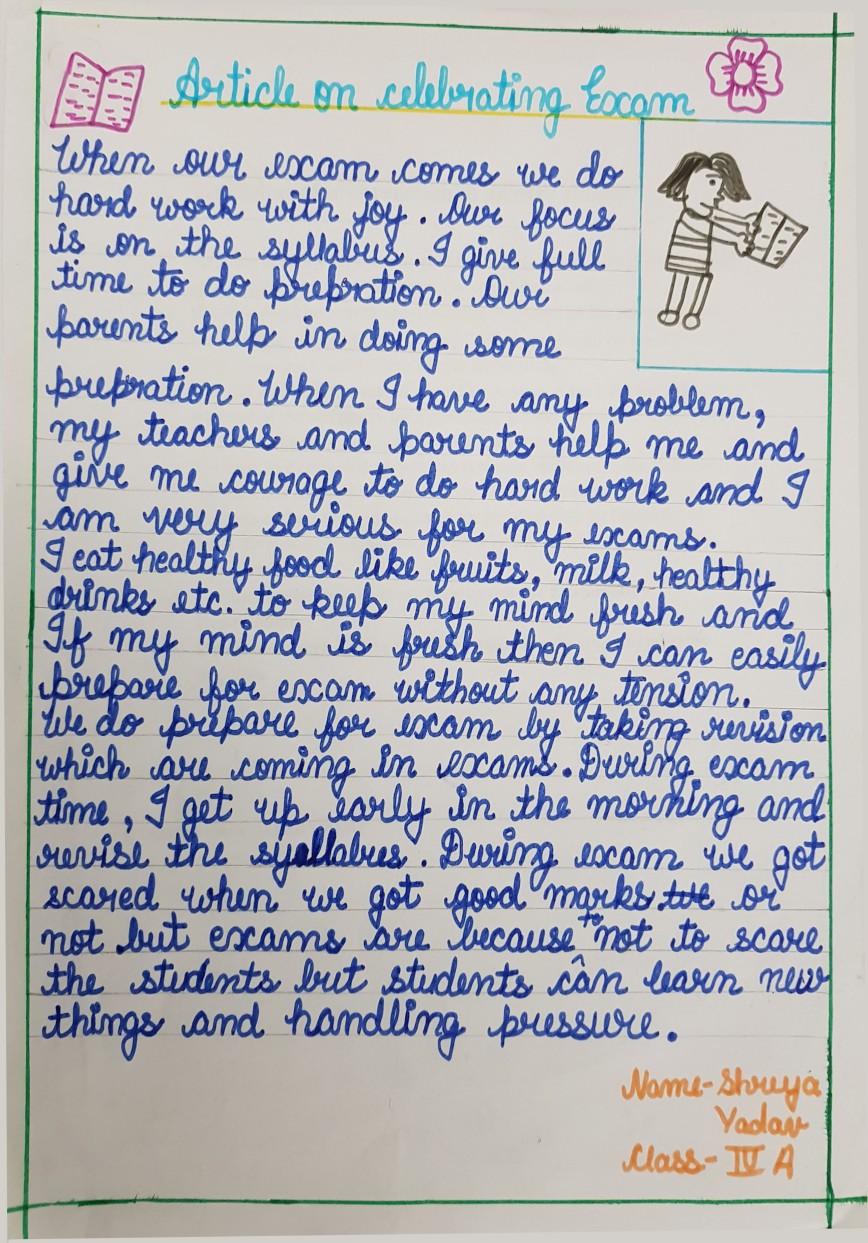 Article on celebrating Exam
When our exam comes we do
hard work with joy. Our focus
is on the syllabus. I give full
time to do prepration. Our
parents help in doing some
prepration. When I have any problem,
my teachers and parents help me and
give me courage to do hard work and I
am very serious for my exams.
I eat healthy food like fruits, milk, healthy
drinks etc. to keep my mind fresh and
If my mind is fresh then I can easily
prepare for exam without any tension.
We do prepare for exam by taking revision
which are coming in exams. During exam
time, I get up early in the morning and
revise the syallabus. During exam we got
scared when we got good marks or
not but exams are because to not to scare
the students but students can learn new
things and handling pressure.
Name-Shreya
Yadav
Class-IV A